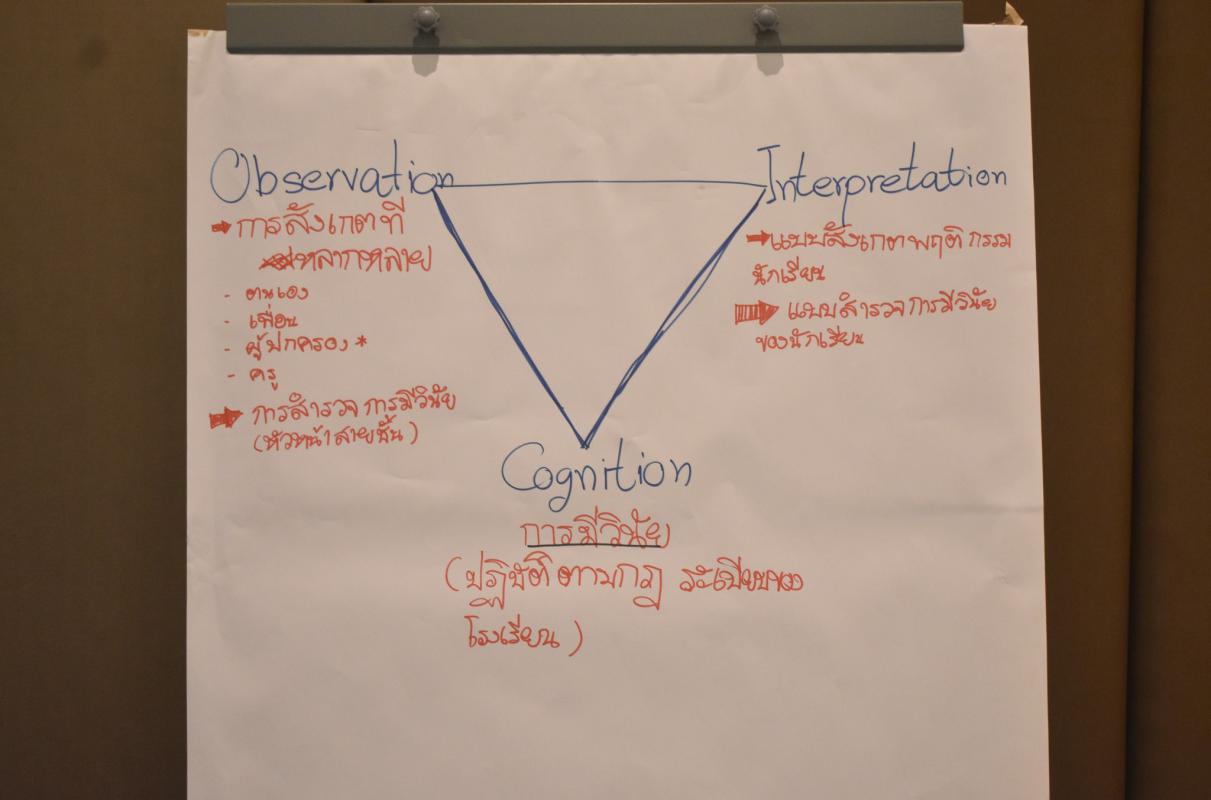 Observation
→ การสังเกตที่
หลากหลาย
- ตนเอง
- เพื่อน
- ผู้ปกครอง *
- ครู
→ การสำรวจการมีวินัย
(หัวหน้าสายชั้น)
Interpretation
→ แบบสังเกตพฤติกรรม
นักเรียน
→ แบบสำรวจการมีวินัย
ของนักเรียน
Cognition
การมีวินัย
(ปฏิบัติตามกฎ ระเบียบของ
โรงเรียน)